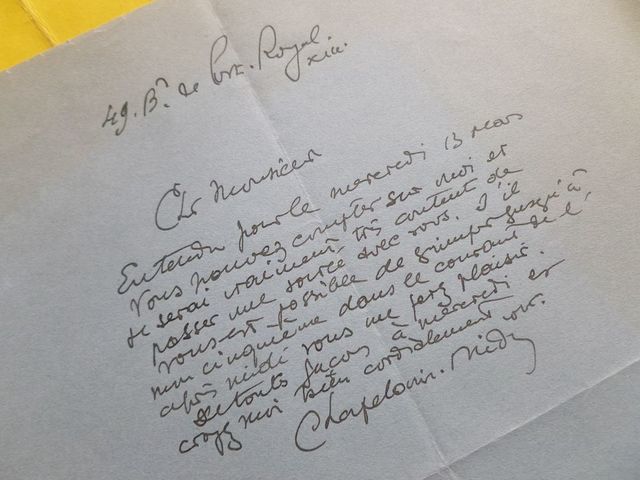 49. Bd de Port-Royal
XIII.
Cher Monsieur
Entendu pour le mercredi 13 mars
Vous pouvez compter sur moi et
je serai vraiment très content de
passer une soirée avec vous. S'il
vous est possible de grimper jusqu'à
mon cinquième dans le courant de l'
après midi vous me ferez plaisir.
De toute façon à mercredi et
croyez moi bien cordialement vôtre.
Chapelain-Midy